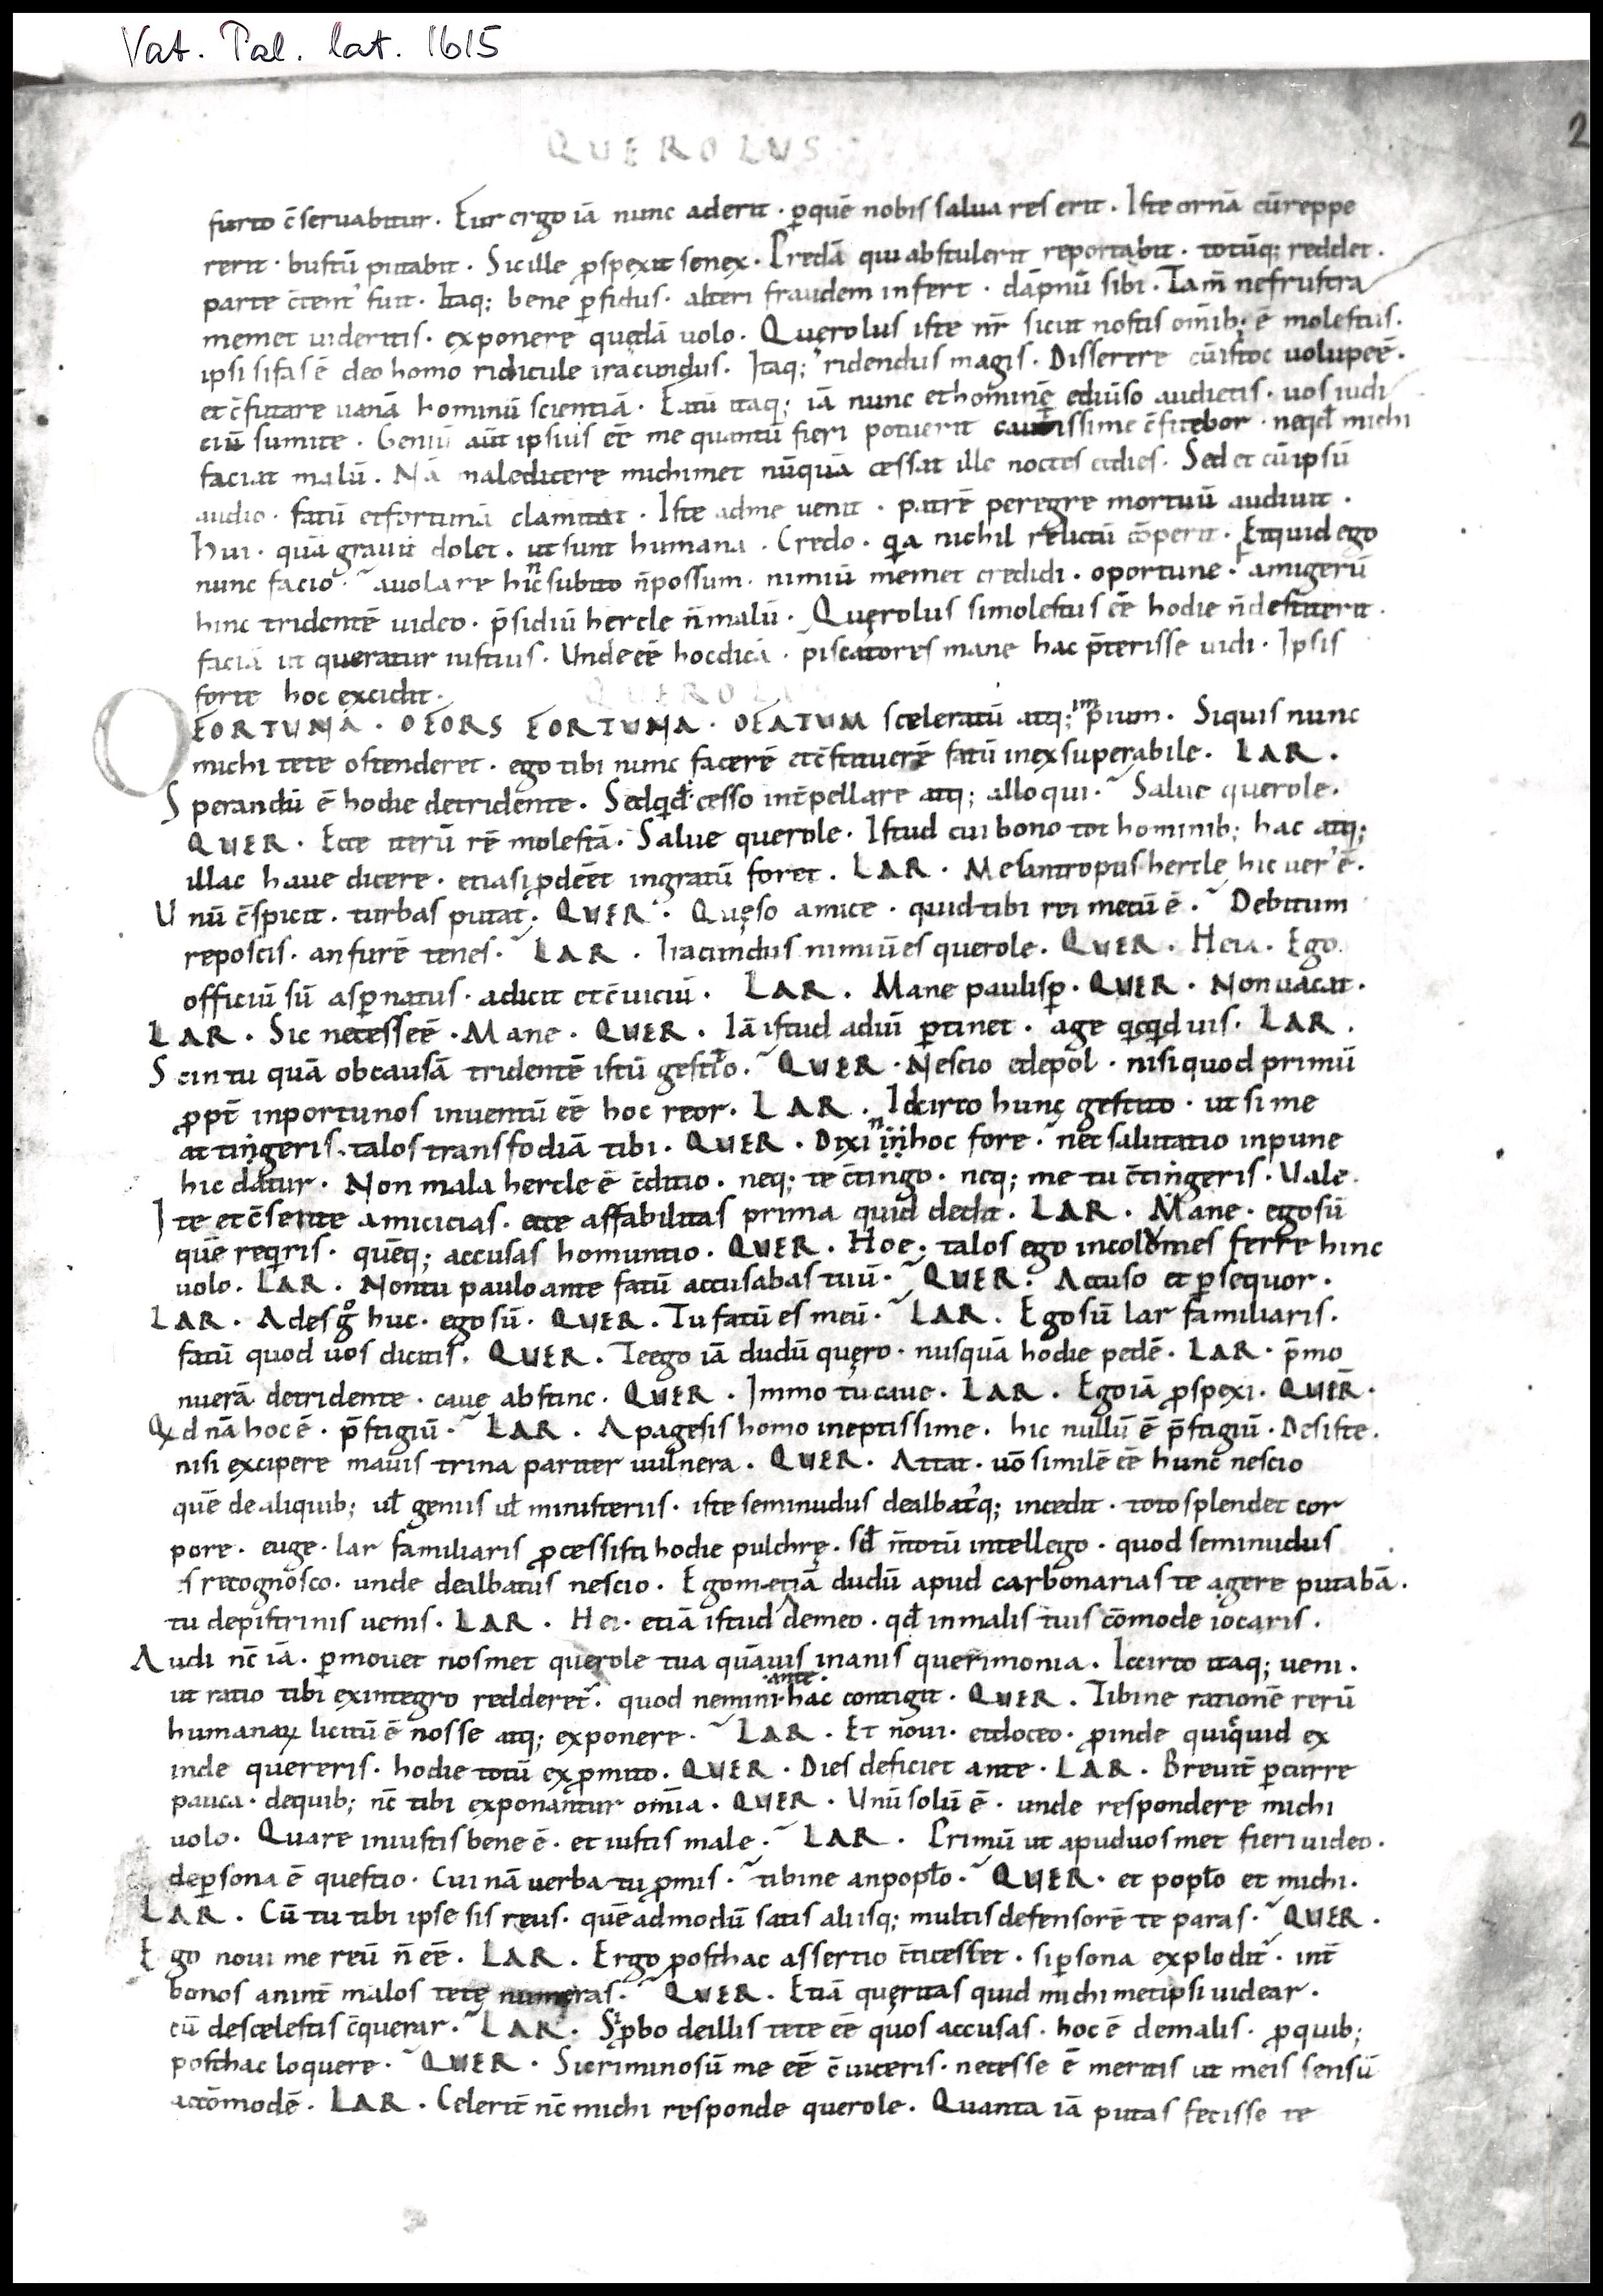 Vat. Pal. lat. 1615
2
QUEROLUS
furto c̄seruabitur. Fur ergo iā nunc aderit. ꝑquē nobis salua res erit. Iste ornā cū reppe
rerit. bustū putabit. Sic ille ꝓspexit senex. Predā qui abstulerit reportabit. totūq; reddet.
parte c̄tent' fuit. Itaq; bene ꝑfidus. alteri fraudem infert. dāpnū sibi. Tam̄ nefrustra
memet uideritis. exponere quedā uolo. Querolus iste nr̄ sicut nostis om̄ib; ē molestus.
ipsi sifas ē deo homo ridicule iracundus. Itaq; ridendus magis. Disserere cū istoc uolupeē.
et c̄futare uanā hominū scientiā. Fatū itaq; iā nunc et hominē ediuiso audietis. uos iudi
ciū sumite. Geniū aūt ipsius eē me quantū fieri potuerit cautissime c̄fitebor. neqd michi
faciat malū. Nā maledicere michimet nūquā cessat ille noctes etdies. Sed et cū ipsū
audio. fatū etfortunā clamitat. Iste adme uenit. patrē peregre mortuū audiuit.
Hui. quā grauit dolet. ut sunt humana. Credo. qa nichil relictū cōperit. Et quid ego
nunc facio. auolare hinc subito n̄possum. nimiū memet credidi. oportune. amigerū
hinc tridentē uideo. p̄sidiū hercle n̄ malū. Querolus simolestus eē hodie n̄destiterit.
faciā ut queratur iustius. Undeeē hocdicā. piscatores mane hac p̄terisse uidi. Ipsis
forte hoc excidit. QUEROLUS
O FORTUNA. OFORS FORTUNA. OFATUM sceleratū atq; impium. Siquis nunc
michi tete ostenderet. ego tibi nunc facerē etc̄stituerē fatū inexsuperabile. LAR.
Sperandū ē hodie detridente. Sedqd cesso int̄pellare atq; alloqui. Salue querole.
QUER. Ecce iterū rē molestā. Salue querole. Istud cui bono tot hominib; hac atq;
illac haue dicere. etiasi ꝓdeēt ingratū foret. LAR. Mesantropus hercle hic uer' ē.
Unū c̄spicit. turbas putat. QUER. Queso amice. quid tibi rei mecū ē. Debitum
reposcis. an furē tenes. LAR. Iracundus nimiū es querole. QUER. Heia. Ego
officiū sū asꝑnatus. adicit et c̄uiciū. LAR. Mane paulisꝑ. QUER. Non uacat.
LAR. Sic necesseē. Mane. QUER. Iā istud aduī ꝑtinet. age qcqd uis. LAR.
Scin tu quā obcausā tridentē istū gesto. QUER. Nescio edepol. nisi quod primū
ꝓpt̄ inportunos inuentū eē hoc reor. LAR. Idcirco hunc gestito. ut si me
attingeris. talos transfodiā tibi. QUER. Dixin hoc fore. nec salutatio inpune
hic datur. Non mala hercle ē c̄ditio. neq; te c̄tingo. neq; me tu c̄tingeris. Vale.
Ite et c̄sente amicicias. ecce affabilitas prima quid dedit. LAR. Mane. ego sū
quē reqris. quēq; accusas homuntio. QUER. Hoe; talos ego incolomes ferre hinc
uolo. LAR. Nontu pauloante fatū accusabas tuū. QUER. Accuso et ꝑsequor.
LAR. Ades gº huc. ego sū. QUER. Tu fatū es meū. LAR. Ego sū lar familiaris.
fatū quod uos dicitis. QUER. Te ego iā dudū quero. nusquā hodie pedē. LAR. p̄mo
nuerā detridente. caue abstinc. QUER. Immo tu caue. LAR. Ego iā ꝓspexi. QUER.
Qd nā hoc ē. p̄stigiū. LAR. Apagesis homo ineptissime. hic nullū ē p̄stigiū. Desiste.
nisi excipere mauis trina pariter uulnera. QUER. Attat. uō similē eē hunc nescio
quē dealiquib; ul̄ geniis ul̄ misteriis. iste seminudus dealbat'q; incedit. toto splendet cor
pore. euge. lar familiaris ꝓcessisti hodie pulchre. sd̄ n̄totū intellego. quod seminudus
es recognosco. unde dealbatus nescio. Egomet iā dudū apud carbonarias te agere putabā.
tu depistrinis uenis. LAR. Hei. etiā istud demeo. qd̄ inmalis tuis cōmode iocaris.
Audi nc̄ iā. ꝑmouet nosmet querole tua quāuis inanis querimonia. Iccirco itaq; ueni.
ut ratio tibi exintegro redderet. quod nemini ante hac contigit. QUER. Tibine rationē rerū
humanaꝝ licitū ē nosse atq; exponere. LAR. Et noui. etdoceo. ꝓinde quicquid ex
inde quereris. hodie totū exꝓmito. QUER. Dies deficiet ante. LAR. Breuit̄ ꝑcurre
pauca. dequib; nc̄ tibi exponantur om̄ia. QUER. Unū solū ē. unde respondere michi
uolo. Quare iniustis bene ē. et iustis male. LAR. Primū ut apud uosmet fieri uideo.
deꝑsona ē questio. Cui nā uerba tu ꝓmis. tibine anpopl̄o. QUER. et popl̄o et michi.
LAR. Cū tu tibi ipse sis reus. quēadmodū satis aliisq; multis defensorē te paras. QUER.
Ego noui me reū n̄ eē. LAR. Ergo posthac assertio c̄ticesset. siꝑsona explodit̄. int̄
bonos anint̄ malos tete numeras. QUER. Etiā queritas quid michimetipsi uidear.
cū descelestis c̄querar. LAR. Si ꝓbo deillis tete eē quos accusas. hoc ē demalis. ꝓquib;
posthac loquere. QUER. Sicriminosū me eē c̄uiceris. necesse ē meritis ut meis sensū
accōmodē. LAR. Celerit̄ nc̄ michi responde querole. Quanta iā putas fecisse te